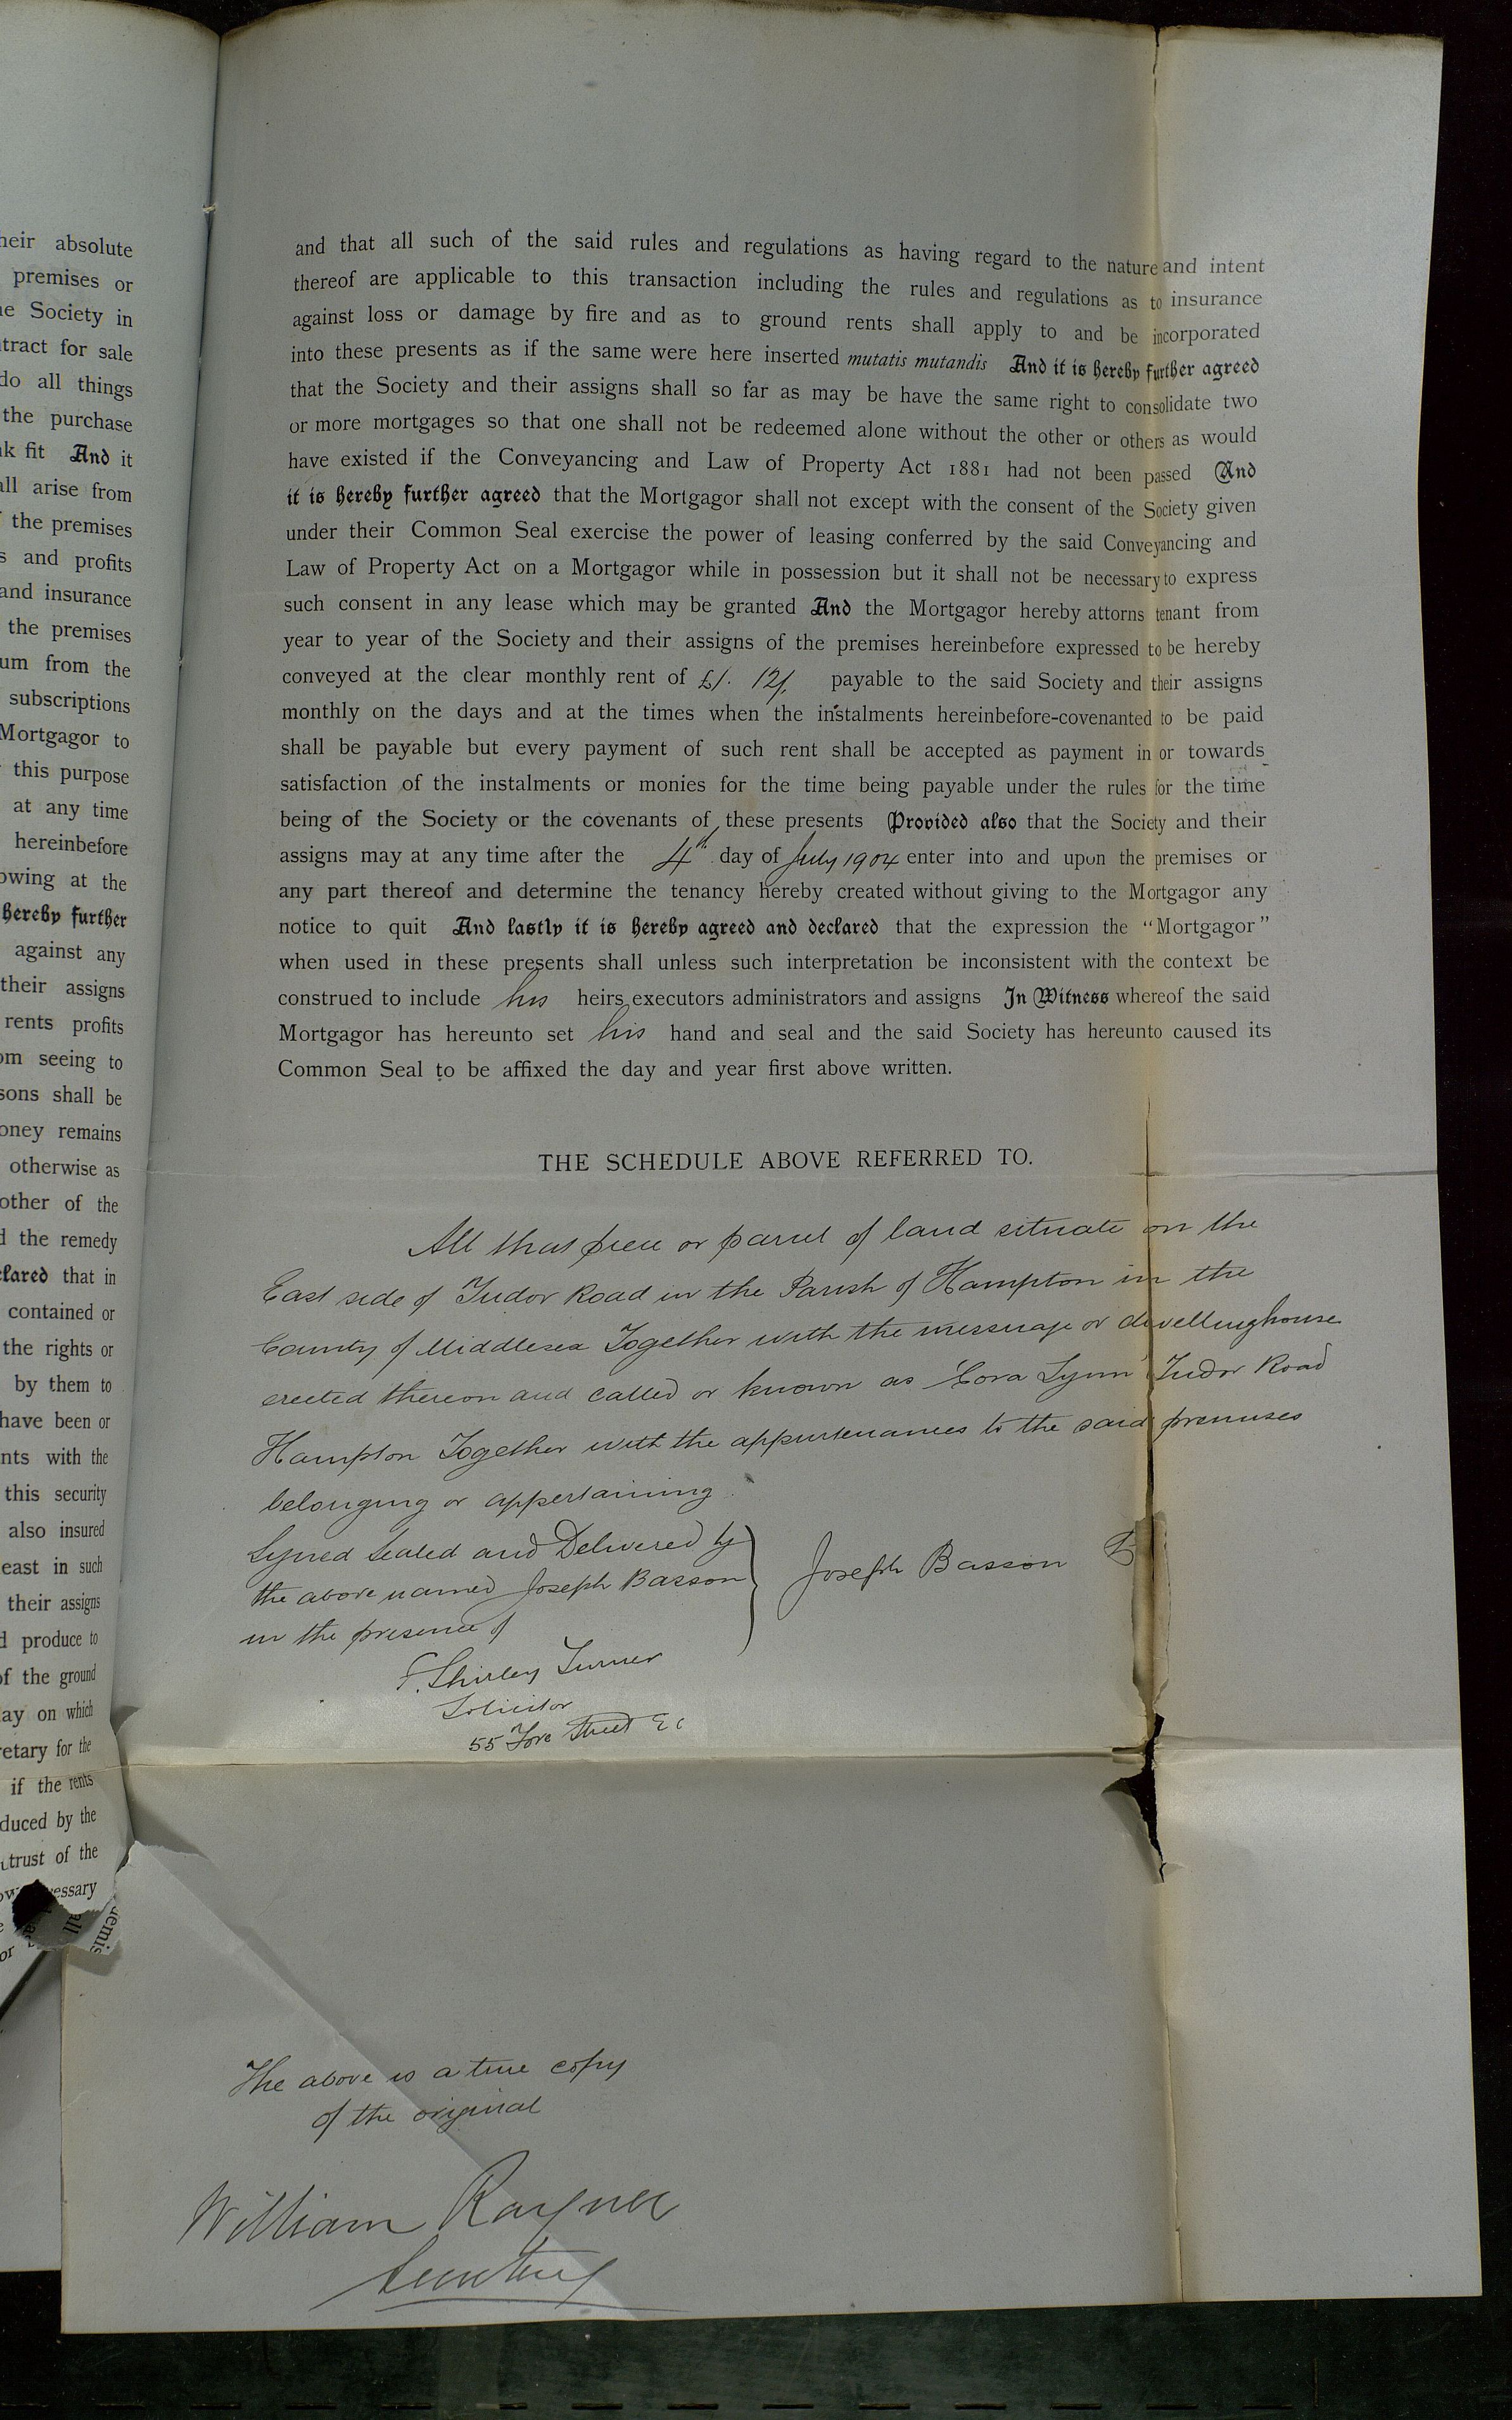 heir absolute
premises or
he Society in
tract for sale
do all things
the purchase
k fit And it
all arise from
the premises
s and profits
and insurance
the premises
um from the
subscriptions
Mortgagor to
this purpose
at any time
hereinbefore
owing at the
hereby further
against any
their assigns
rents profits
om seeing to
sons shall be
oney remains
otherwise as
other of the
d the remedy
clared that in
contained or
the rights or
by them to
have been or
nts with the
this security
also insured
east in such
their assigns
d produce to
of the ground
ay on which
retary for the
if the rents
duced by the
trust of the
essary
or
and that all such of the said rules and regulations as having regard to the nature and intent
thereof are applicable to this transaction including the rules and regulations as to insurance
against loss or damage by fire and as to ground rents shall apply to and be incorporated
into these presents as if the same were here inserted mutatis mutandis And it is hereby further agreed
that the Society and their assigns shall so far as may be have the same right to consolidate two
or more mortgages so that one shall not be redeemed alone without the other or others as would
have existed if the Conveyancing and Law of Property Act 1881 had not been passed And
it is hereby further agreed that the Mortgagor shall not except with the consent of the Society given
under their Common Seal exercise the power of leasing conferred by the said Conveyancing and
Law of Property Act on a Mortgagor while in possession but it shall not be necessary to express
such consent in any lease which may be granted And the Mortgagor hereby attorns tenant from
year to year of the Society and their assigns of the premises hereinbefore expressed to be hereby
conveyed at the clear monthly rent of £1. 12/. payable to the said Society and their assigns
monthly on the days and at the times when the instalments hereinbefore-covenanted to be paid
shall be payable but every payment of such rent shall be accepted as payment in or towards
satisfaction of the instalments or monies for the time being payable under the rules for the time
being of the Society or the covenants of these presents Provided also that the Society and their
assigns may at any time after the 4th day of July 1904 enter into and upon the premises or
any part thereof and determine the tenancy hereby created without giving to the Mortgagor any
notice to quit And lastly it is hereby agreed and declared that the expression the "Mortgagor"
when used in these presents shall unless such interpretation be inconsistent with the context be
construed to include his heirs executors administrators and assigns In Witness whereof the said
Mortgagor has hereunto set his hand and seal and the said Society has hereunto caused its
Common Seal to be affixed the day and year first above written.
THE SCHEDULE ABOVE REFERRED TO.
All that piece or parcel of land situate on the
East side of Tudor Road in the Parish of Hampton in the
County of Middlesex Together with the messuage or dwellinghouse
erected thereon and called or known as "Cora Lynn" Tudor Road
Hampton Together with the appurtenances to the said premises
belonging or appertaining.
Signed Sealed and Delivered by
the above named Joseph Basson
in the presence of
Joseph Basson
F. Shirley Turner
Solicitor
55 Fore Street E C
The above is a true copy
of the original
William Rayner
Secretary